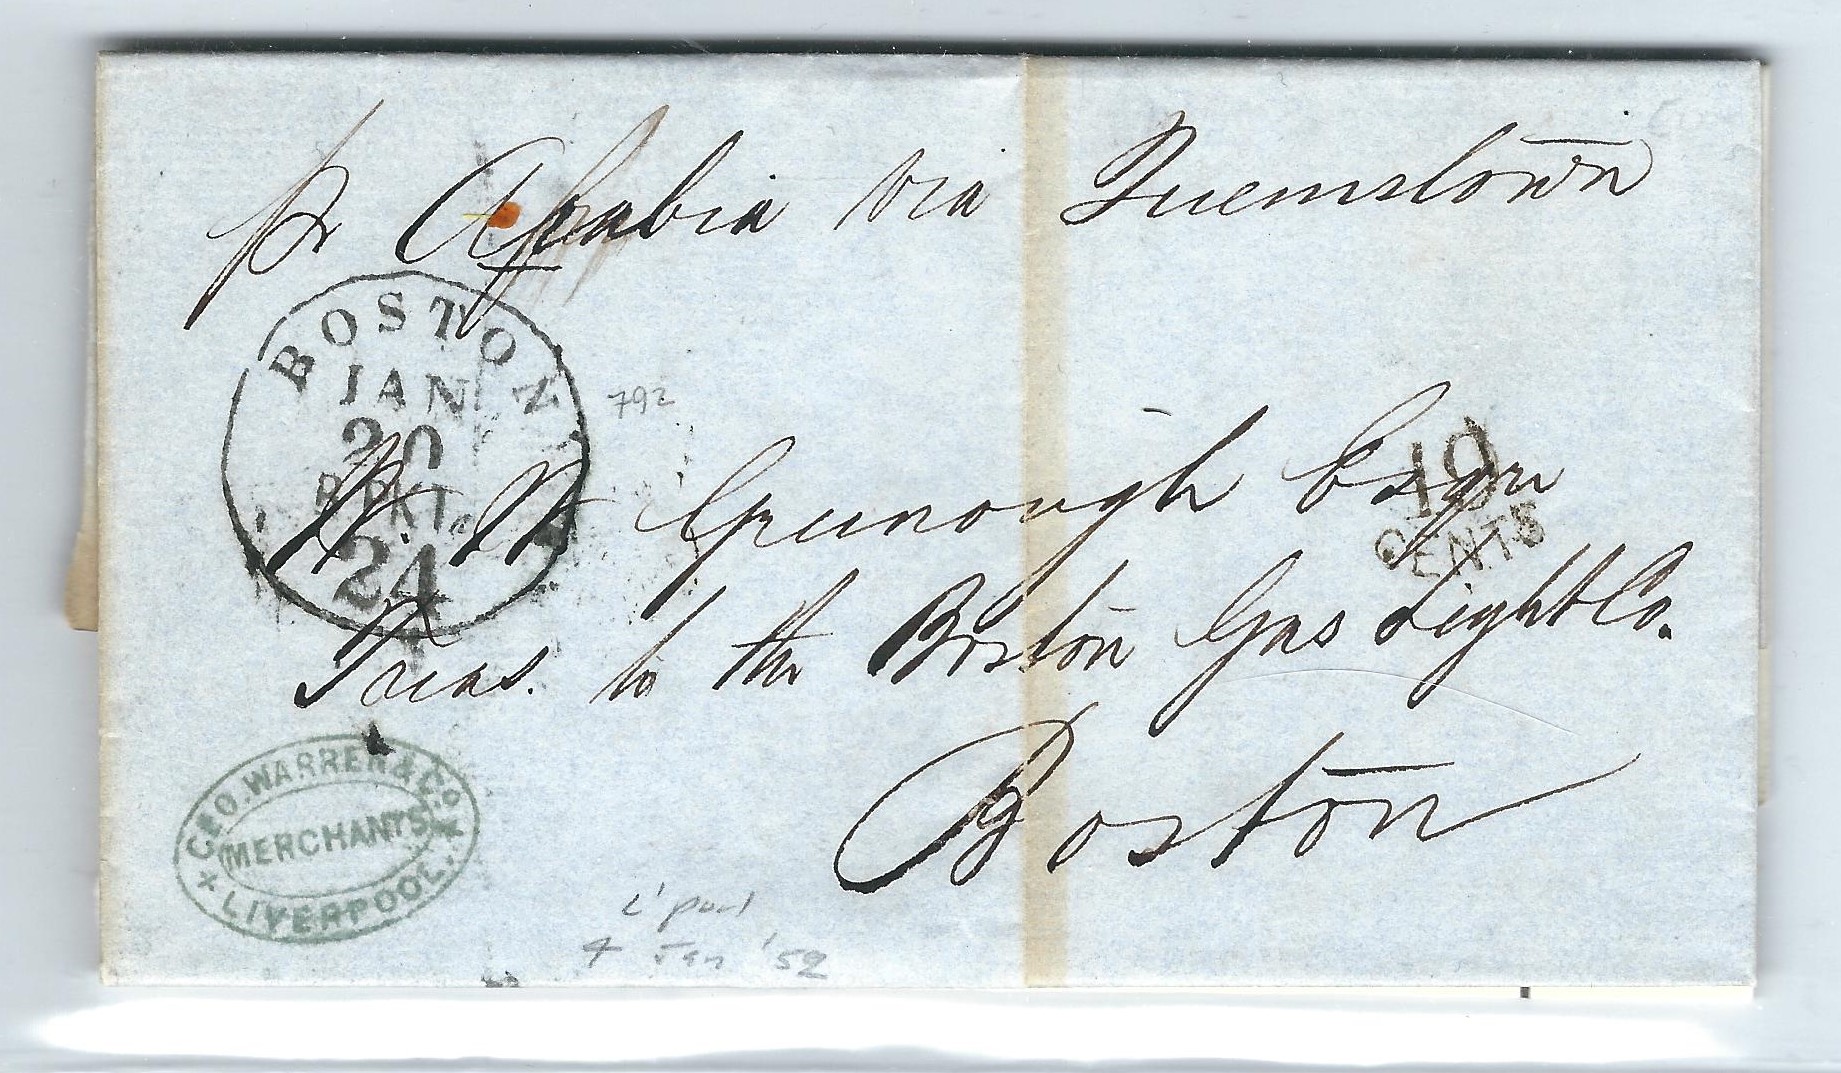 pr Arabia via Queenstown
BOSTON
JAN
20
BR PKT.
24
792
19
CENTS
W. W. Greenough Esqre
Treas. to the Boston Gas Light Co.
Boston
GEO. WARREN & CO.
MERCHANTS
LIVERPOOL.
L'pool
4 Jan '